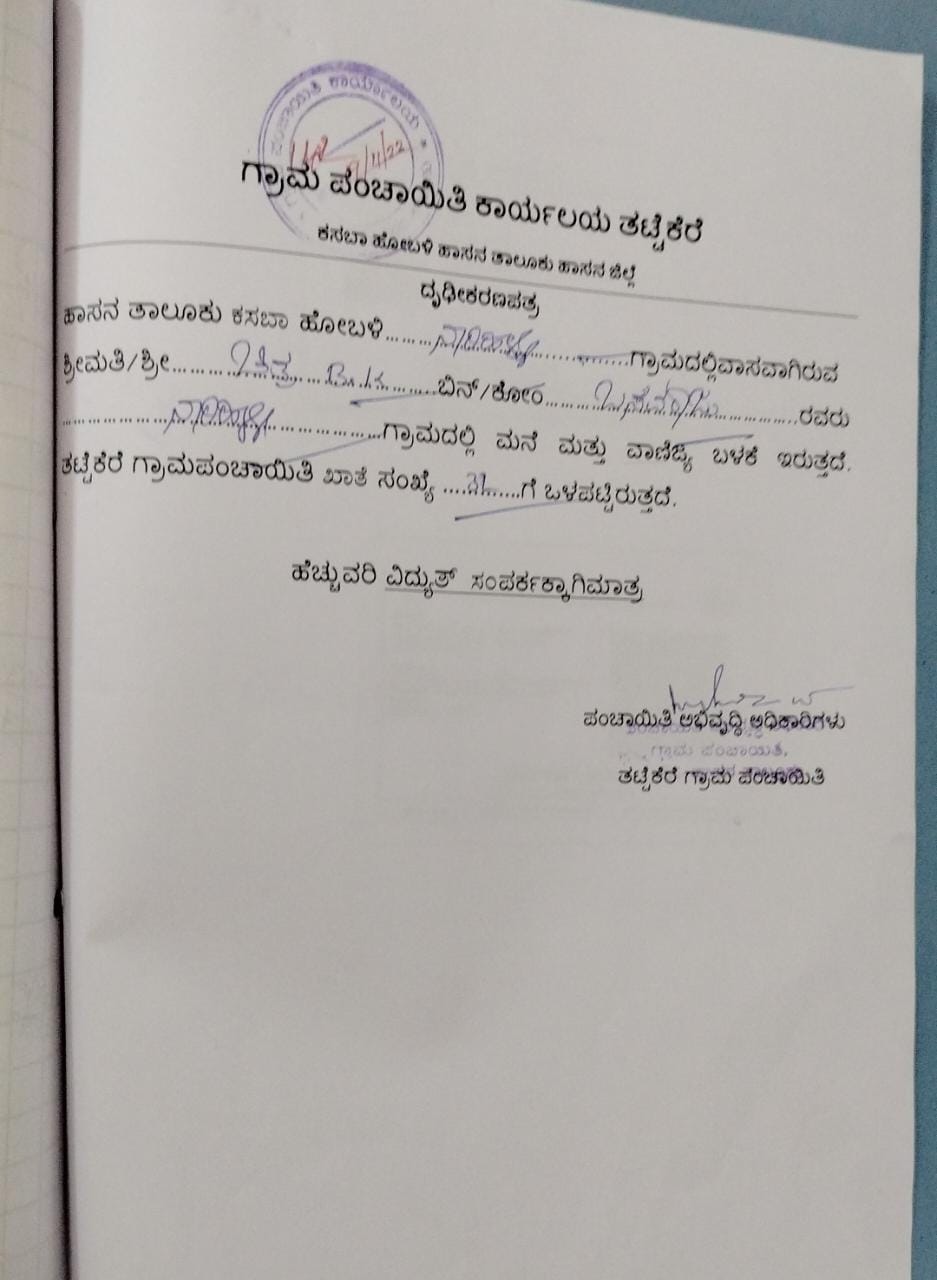 ಪಂಚಾಯಿತಿ ಕಾರ್ಯಾಲಯ
/11/22
ಗ್ರಾಮ ಪಂಚಾಯಿತಿ ಕಾರ್ಯಲಯ ತಟ್ಟೆಕೆರೆ
ಕಸಬಾ ಹೋಬಳಿ ಹಾಸನ ತಾಲೂಕು ಹಾಸನ ಜಿಲ್ಲೆ
ದೃಢೀಕರಣಪತ್ರ
ಹಾಸನ ತಾಲೂಕು ಕಸಬಾ ಹೋಬಳಿ.................ಗ್ರಾಮದಲ್ಲಿವಾಸವಾಗಿರುವ
ಶ್ರೀಮತಿ/ಶ್ರೀ.................ಬಿನ್/ಕೋಂ.................ರವರು
.................ಗ್ರಾಮದಲ್ಲಿ ಮನೆ ಮತ್ತು ವಾಣಿಜ್ಯ ಬಳಕೆ ಇರುತ್ತದೆ.
ತಟ್ಟೆಕೆರೆ ಗ್ರಾಮಪಂಚಾಯಿತಿ ಖಾತೆ ಸಂಖ್ಯೆ ............ಗೆ ಒಳಪಟ್ಟಿರುತ್ತದೆ.
ಹೆಚ್ಚುವರಿ ವಿದ್ಯುತ್ ಸಂಪರ್ಕಕ್ಕಾಗಿಮಾತ್ರ
ಪಂಚಾಯಿತಿ ಅಭಿವೃದ್ಧಿ ಅಧಿಕಾರಿಗಳು
ಗ್ರಾಮ ಪಂಚಾಯಿತಿ,
ತಟ್ಟೆಕೆರೆ ಗ್ರಾಮ ಪಂಚಾಯಿತಿ